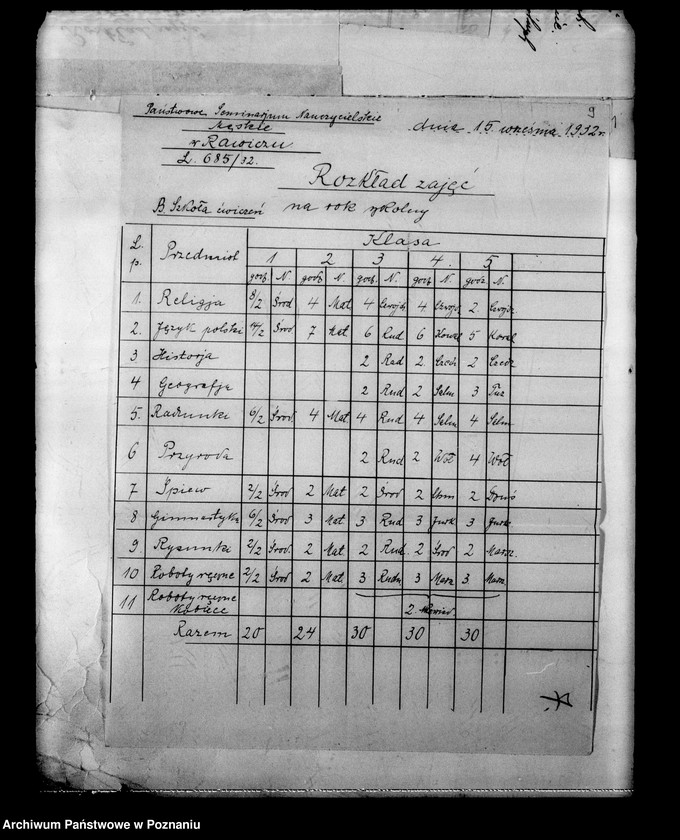 9
Państwowe Seminarjum Nauczycielskie
męskie
w Rawiczu
L. 685/32.
dnia 15 września 1932 r.
Rozkład zajęć
B. Szkoła ćwiczeń na rok szkolny
L. p. Przedmiot Klasa
1 2 3 4. 5
godz. N. godz. N. godz. N. godz. N. godz. N.
1. Religja 8/2 Środ 4 Mat 4 4 2
2. Język polski Środ 7 Mat. 6 Rud 6 Kowal 5 Kowal
3 Historja 2 Rud 2 Czech 2 Czech
4 Geografja 2 Rud 2 Selm 3 Tuz
5. Rachunki 6/2 Środ. 4 Mat. 4 Rud 4 Selm 4 Selm
6 Przyroda 2 Rud 2 Woł 4 Woł
7 Śpiew 2/2 Środ 2 Mat 2 Środ 2 2
8 Gimnastyka 6/2 Środ 3 Mat. 3 Rud 3 Jurk 3 Jurk
9 Rysunki 2/2 Środ. 2 Mat. 2 Rud. 2 Środ 2 Marsz.
10 Roboty ręczne 2/2 Środ 2 Mat. 3 Rudn 3 Marsz 3 Marsz
11 Roboty ręczne kobiece 2
Razem 20 24 30 30 30
Archiwum Państwowe w Poznaniu